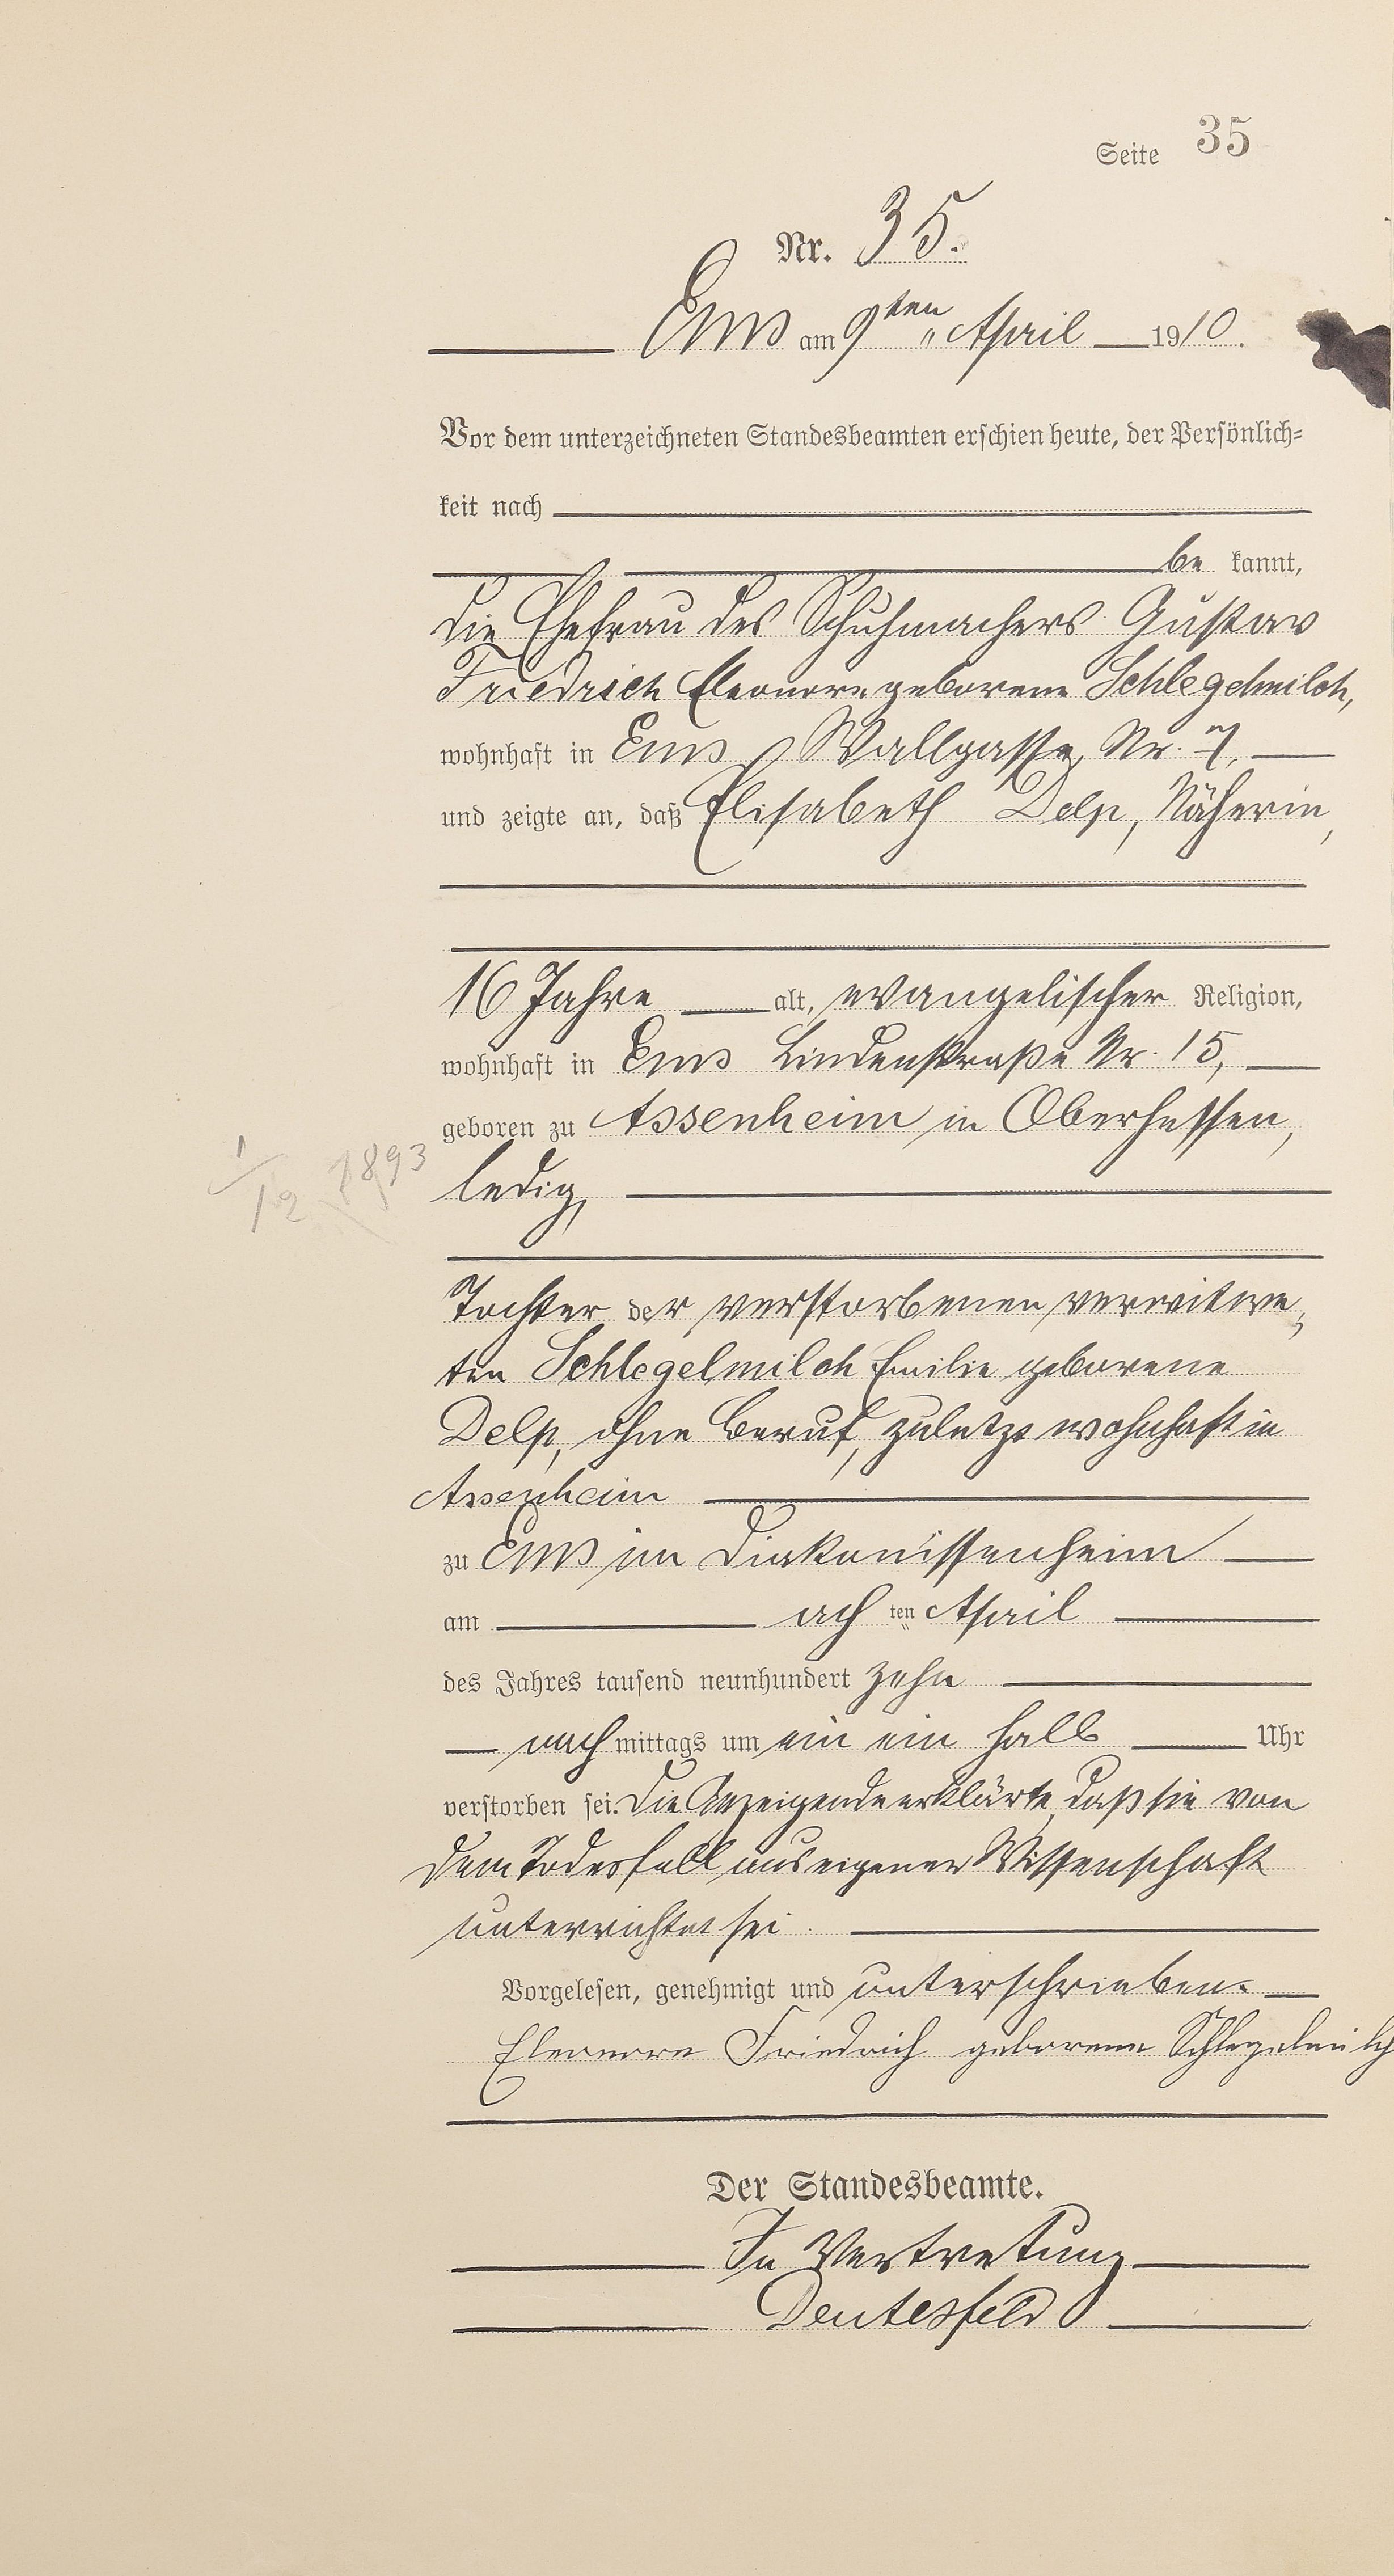 Seite 35
Nr. 35.
Ems am 9ten April 1910.
Vor dem unterzeichneten Standesbeamten erschien heute, der Persönlich-
keit nach
be kannt,
die Ehefrau des Schuhmachers Gustav
Friedrich Eleonore geborene Schlegelmilch,
wohnhaft in Ems, Wallgasse Nr. 7,
und zeigte an, daß Elisabeth Delp, Näherin,
16 Jahre alt, evangelischer Religion,
wohnhaft in Ems Lindenstraße Nr. 15,
geboren zu Assenheim in Oberhessen,
1/12 1893
ledig,
Tochter der verstorbenen verwitwe-
ten Schlegelmilch Emilie geborene
Delp, ohne Beruf, zuletzt wohnhaft in
Assenheim
zu Ems im Diakonissenheim
am ach ten April
des Jahres tausend neunhundert zehn
nach mittags um ein ein halb Uhr
verstorben sei. Die Anzeigende erklärte, daß sie von
dem Todesfall aus eigener Wissenschaft
unterrichtet sei.
Vorgelesen, genehmigt und unterschrieben.
Eleonore Friedrich geborene Schlegelmilch
Der Standesbeamte.
In Vertretung
Dentesfeld